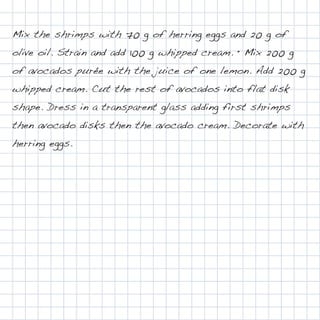 Mix the shrimps with 70 g of herring eggs and 20 g of
olive oil. Strain and add 100 g whipped cream. * Mix 200 g
of avocados purée with the juice of one lemon. Add 200 g
whipped cream. Cut the rest of avocados into flat disk
shape. Dress in a transparent glass adding first shrimps
then avocado disks then the avocado cream. Decorate with
herring eggs.